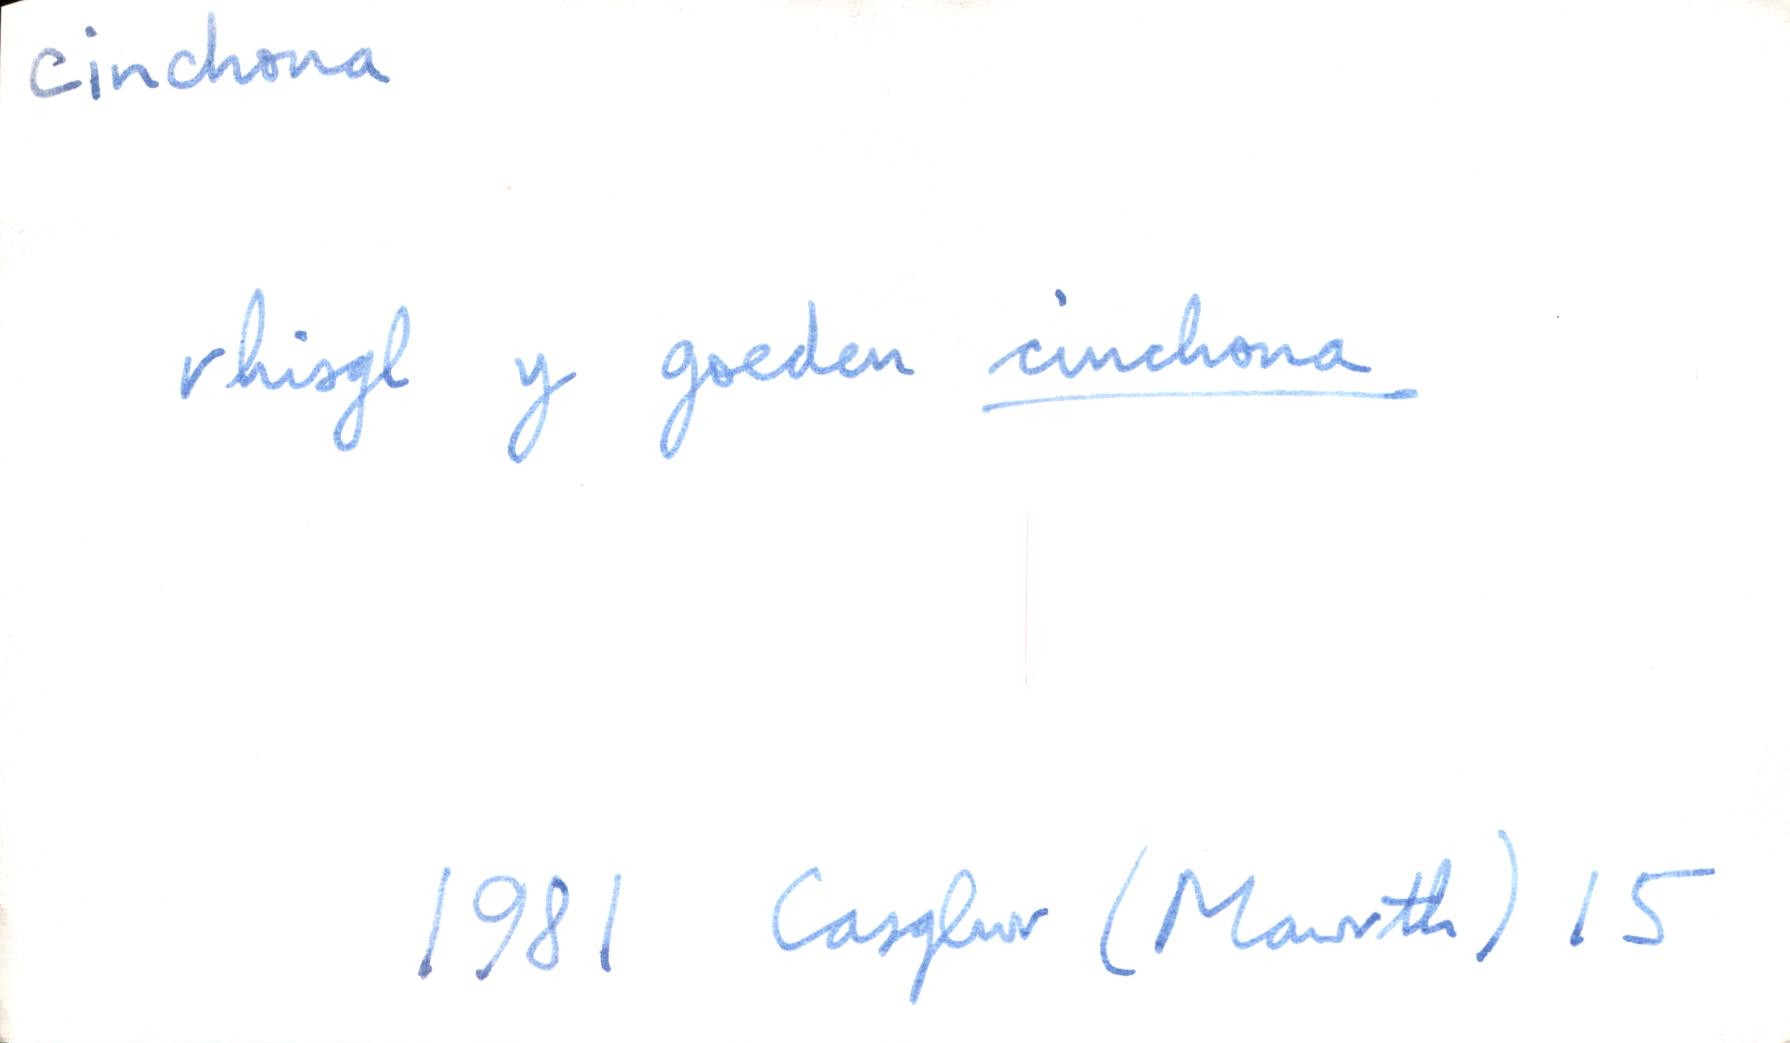 cinchona
rhisgl y goeden cinchona
1981 Casglwr (Mawrth) 15